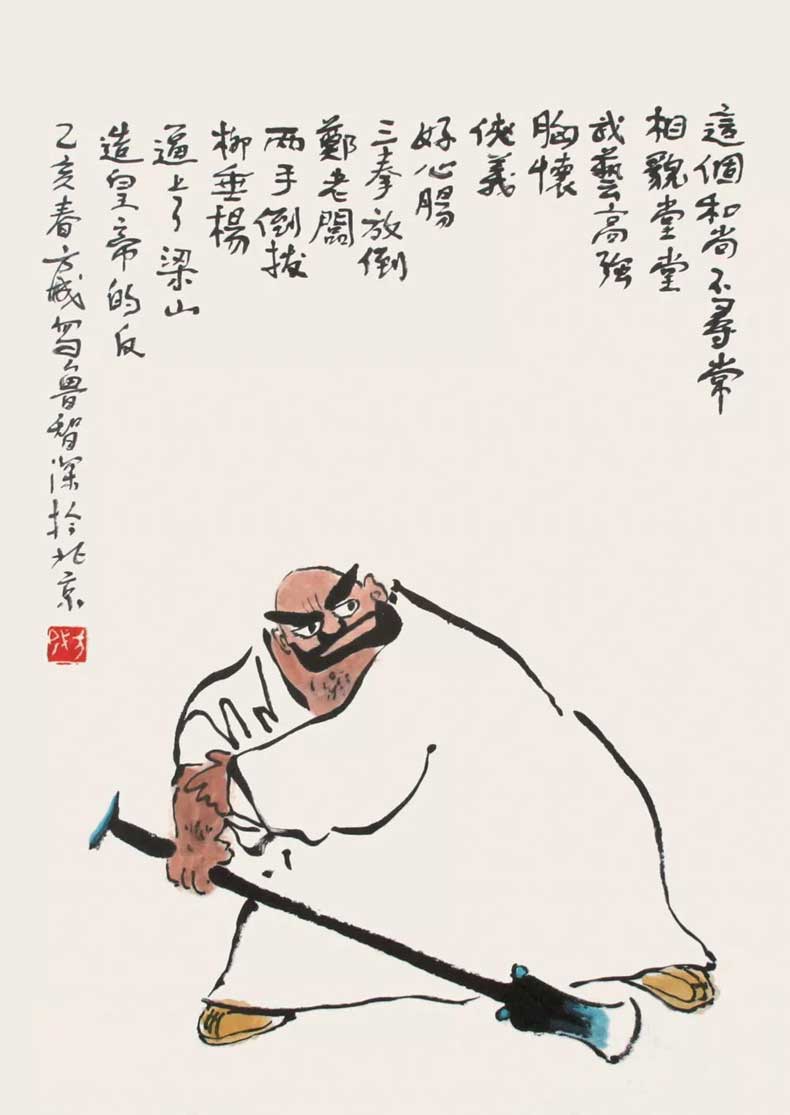 這個和尚不尋常
相貌堂堂
武藝高強
胸懷
俠義
好心腸
三拳放倒
鄭老闆
兩手倒拔
柳垂楊
逼上了梁山
造皇帝的反
乙亥春方成寫魯智深於北京
方成